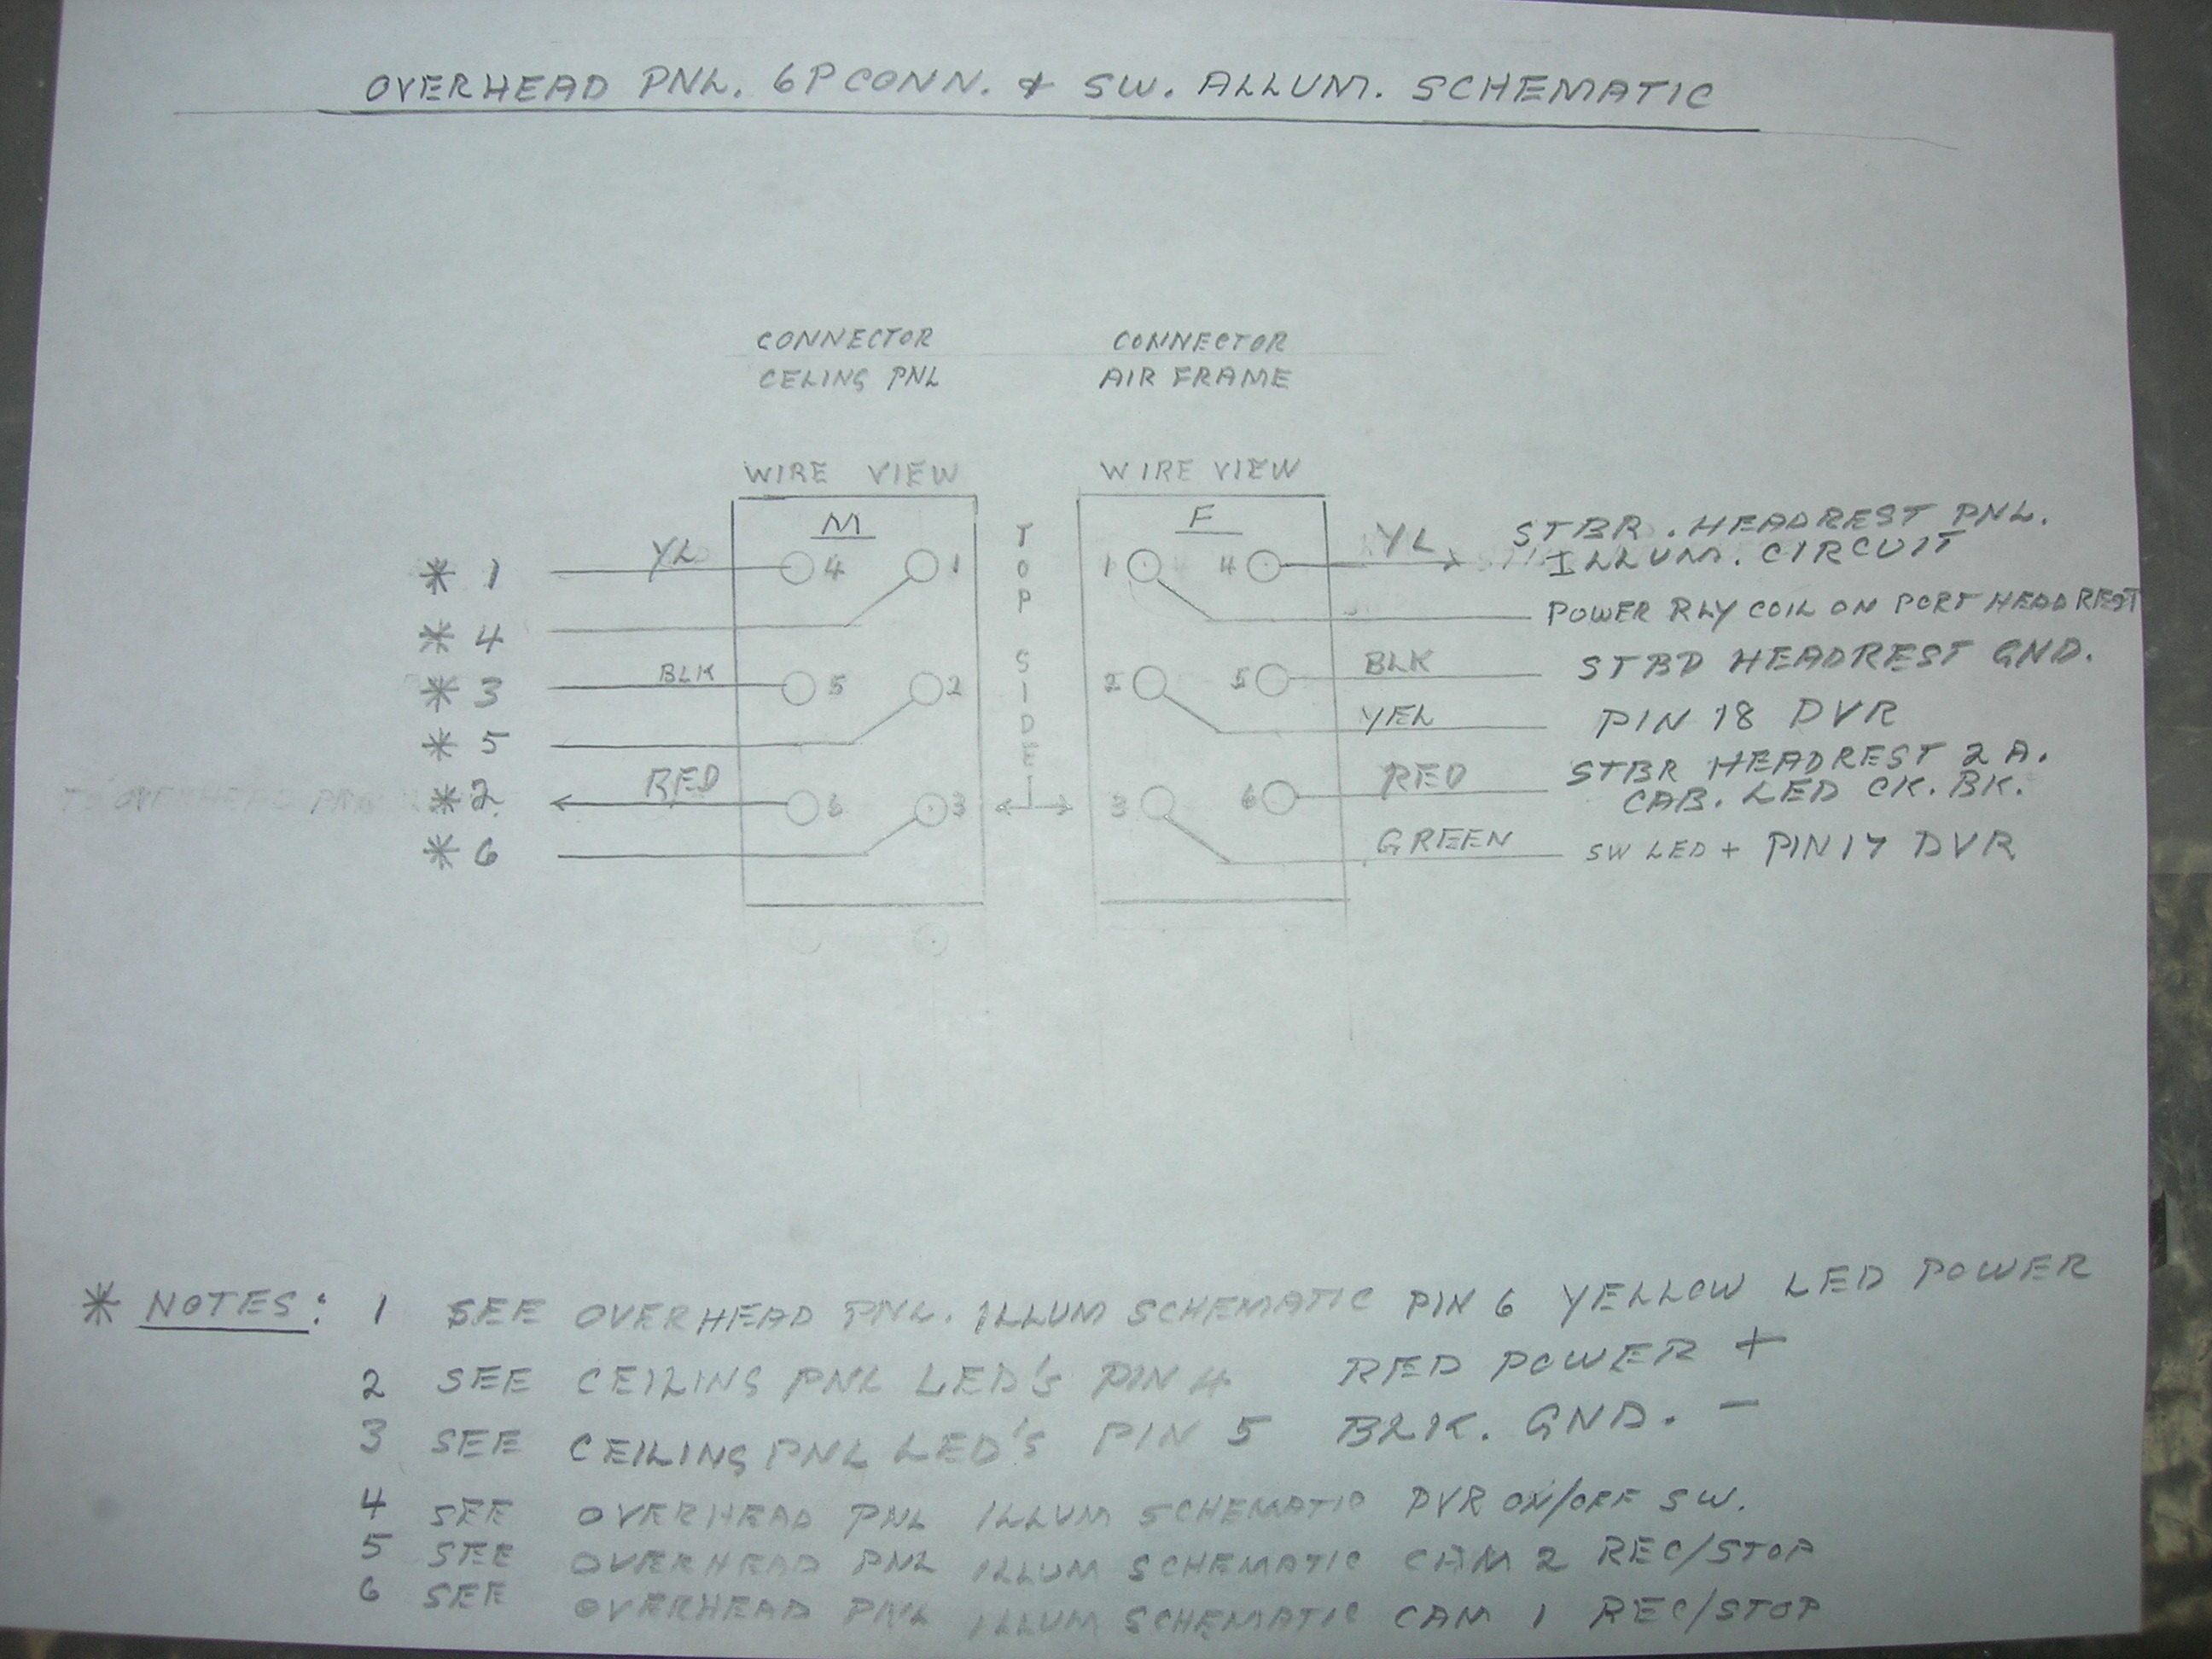 OVERHEAD PNL. 6P CONN. & SW. ALLUM. SCHEMATIC
CONNECTOR CONNECTOR
CELING PNL AIR FRAME
WIRE VIEW WIRE VIEW
M F
TOP SIDE
* 1 YL 4 1 1 4 YL STBR. HEADREST PNL.
ILLUM. CIRCUIT
* 4 POWER RLY COIL ON PORT HEADREST
* 3 BLK 5 2 2 5 BLK STBD HEADREST GND.
* 5 YEL PIN 18 DVR
TO OVERHEAD * 2 RED 6 3 3 6 RED STBR HEADREST 2 A.
CAB. LED CK. BK.
* 6 GREEN SW LED + PIN 17 DVR
* NOTES: 1 SEE OVERHEAD PNL. ILLUM SCHEMATIC PIN 6 YELLOW LED POWER
2 SEE CEILING PNL LED'S PIN 4 RED POWER +
3 SEE CEILING PNL LED'S PIN 5 BLK. GND. -
4 SEE OVERHEAD PNL ILLUM SCHEMATIC DVR ON/OFF SW.
5 SEE OVERHEAD PNL ILLUM SCHEMATIC CAM 2 REC/STOP
6 SEE OVERHEAD PNL ILLUM SCHEMATIC CAM 1 REC/STOP